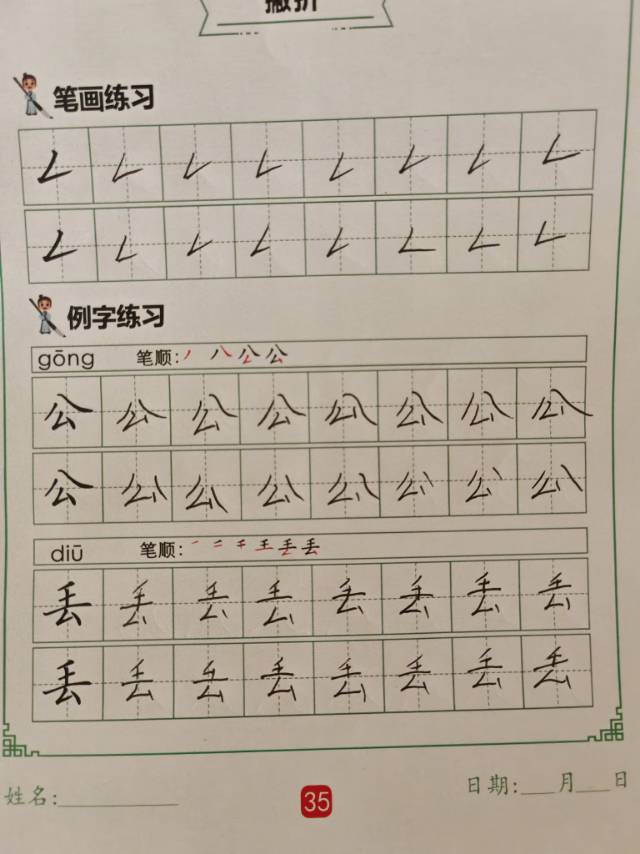 撇折
笔画练习
例字练习
gōng 笔顺:丿 八 公 公
公 公 公 公 公 公 公 公
公 公 公 公 公 公 公 公
diū 笔顺:一 二 千 王 丢 丢
丢 丢 丢 丢 丢 丢 丢 丢
丢 丢 丢 丢 丢 丢 丢 丢
姓名:
35
日期: 月 日